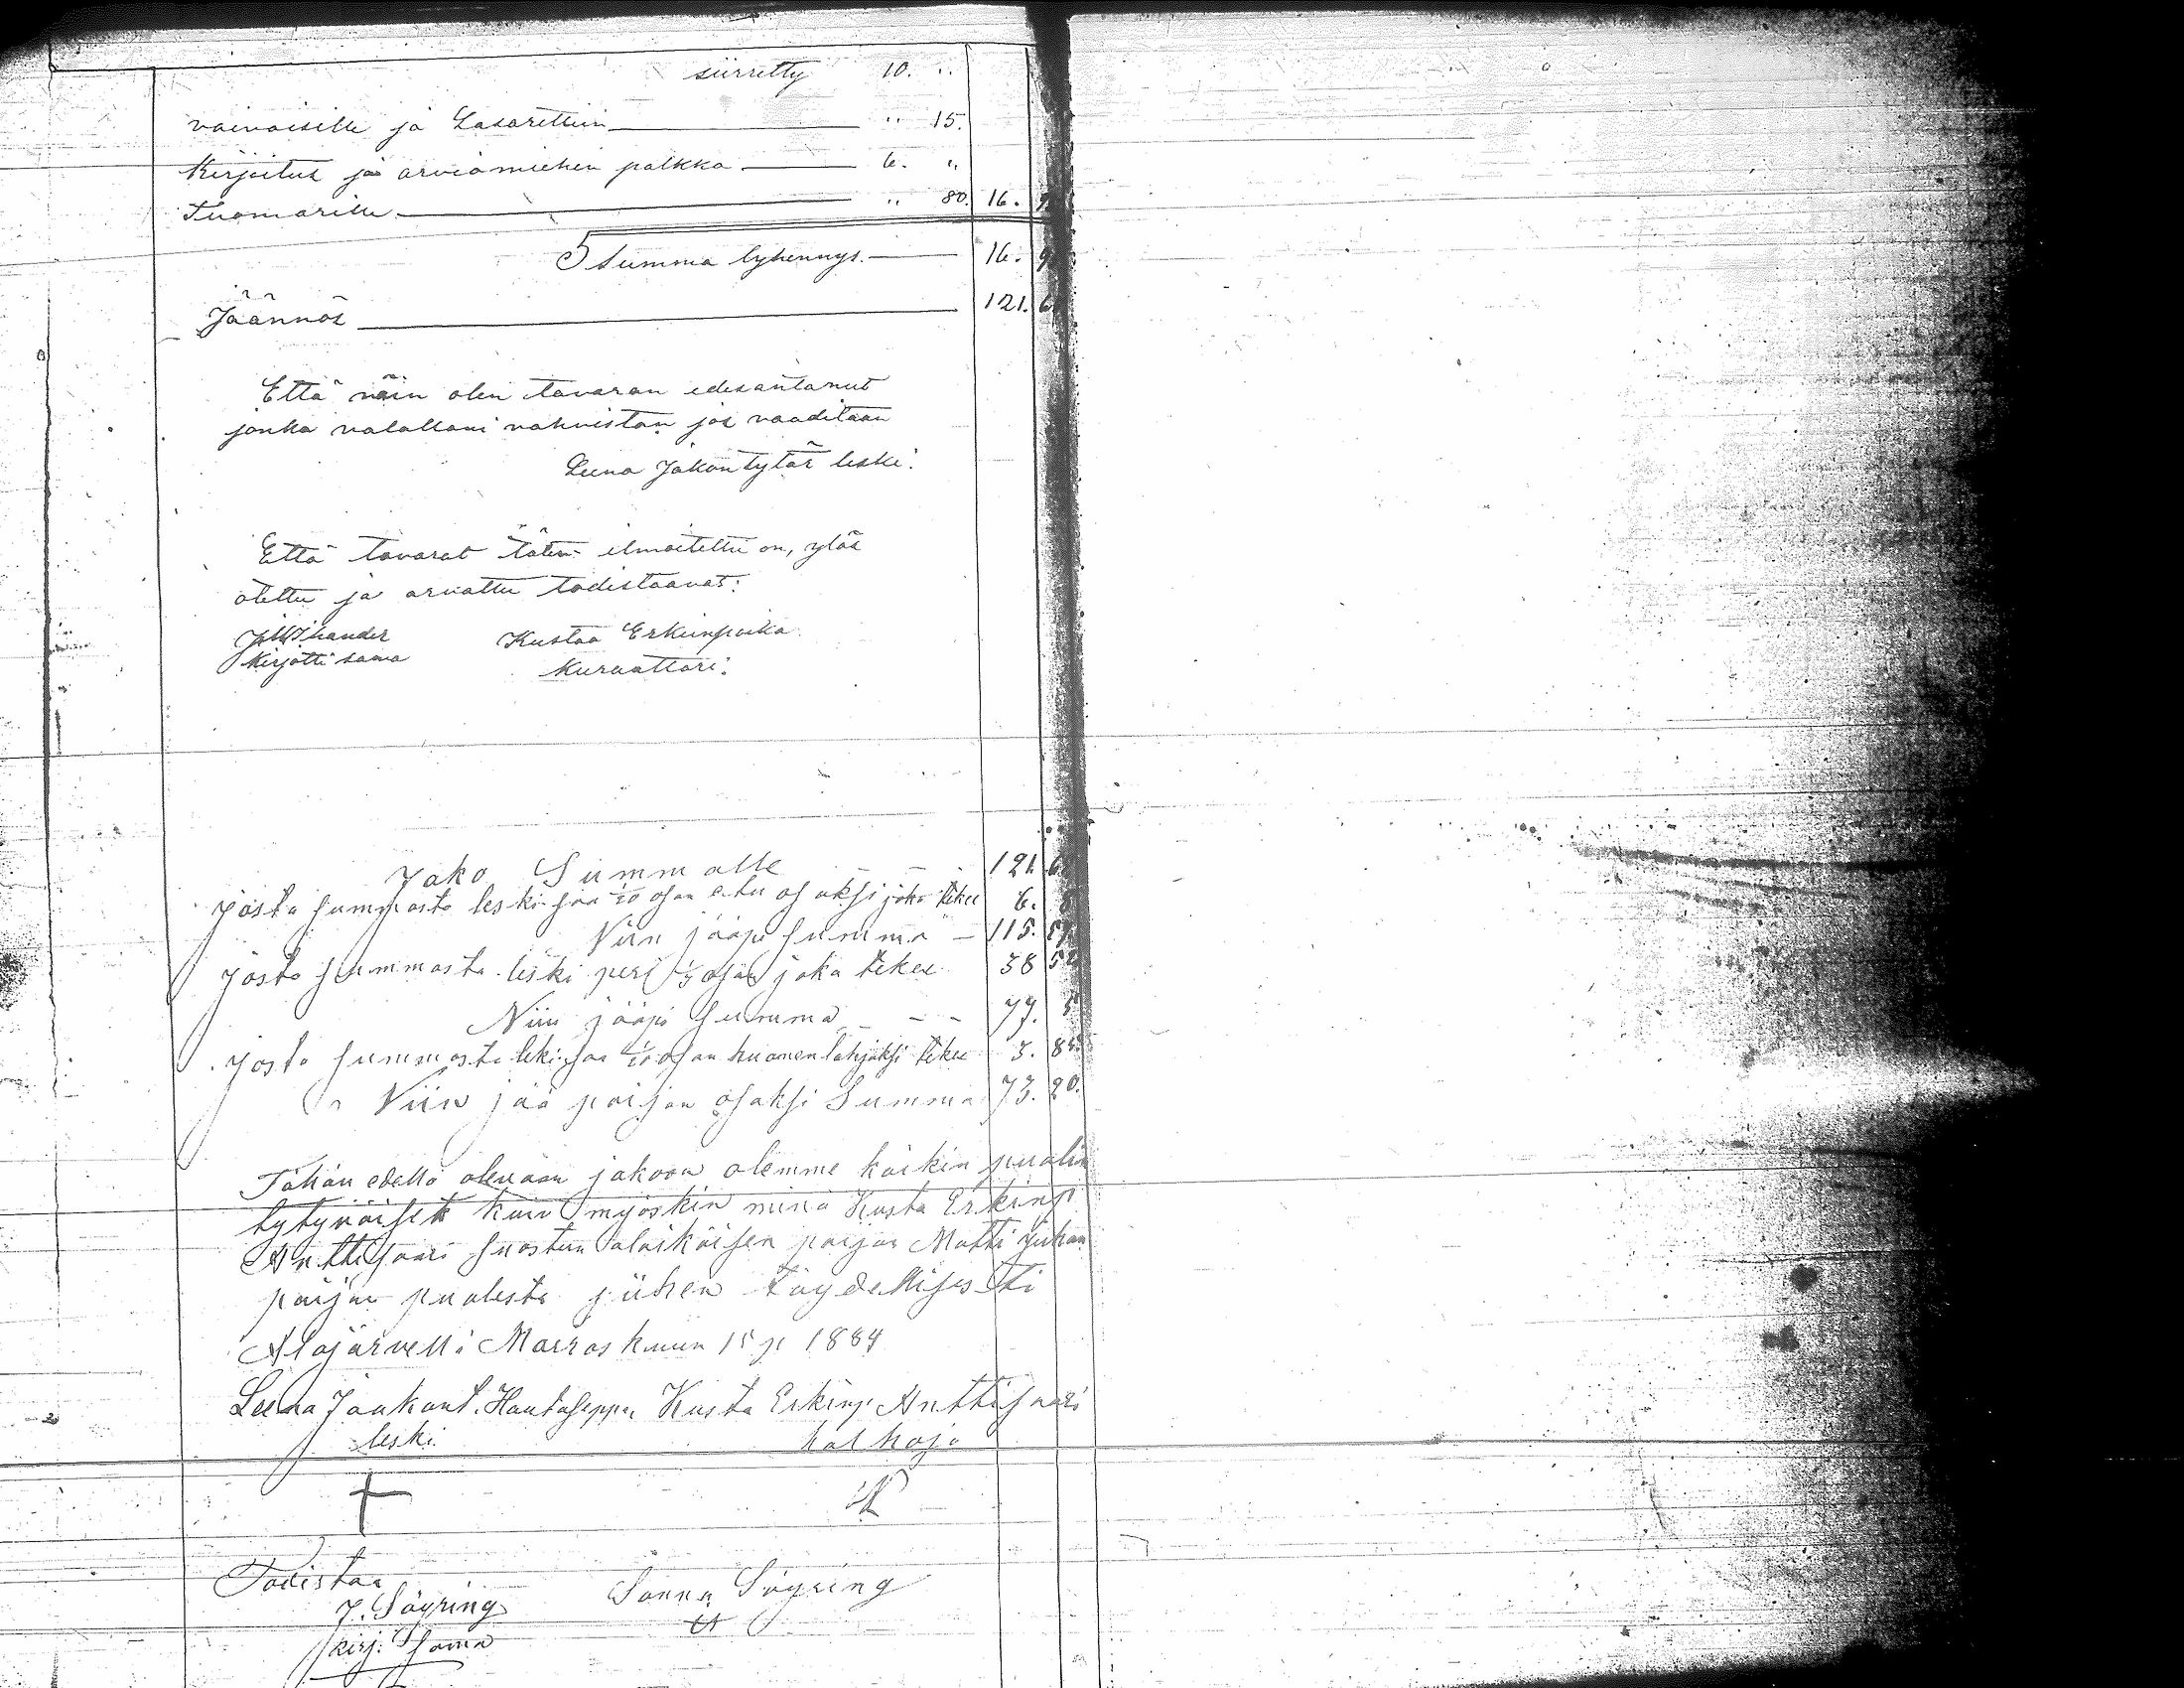 siirretty 10. "
vaivaisille ja Lasarettiin " 15.
Kirjoitus ja arviomiehen palkka 6. "
Tuomarille " 80. 16. 9
Summa lyhennys. 16. 9
Jäännös 121. 6
Että näin olen tavaran edesantanut
jonka valallani vahvistan jos vaaditaan
Leena Jakontytär leski.
Että tavarat täten ilmoitettu on, ylös
otettu ja arvattu todistaavat:
Kustaa Erkinpoika
Kirjotti sama
Kuraattori.
Jako Summalle 121. 6
josta summasta leski saa 1/20 osan etu osaksi joka tekee 6. 8
Niin jääpi summa 115. 57
josta summasta leski peri 1/3 osan joka tekee 38 52
Niin jääpi summa 77. 5
josta summasta leki saa 1/20 osan huomenlahjaksi tekee 3. 85
Niin jää poijan osaksi Summa 73. 20.
Tähän edellä olevaan jakoon olemme kaikin puolin
tytyväiset kuin myöskin minä Kusta Erkinp
Anttisaari suostun alaikäisen poijan Matti Juhan
poijan puolesta siihen täydellisesti
Alajärvellä Marraskuun 15 p 1884
Leena Jaakont. Hautaseppa Kusta Erkinp. Anttisaari
leski. holhoja
Todistaa
J. Söyring Sanna Söyring
kirj. Sama